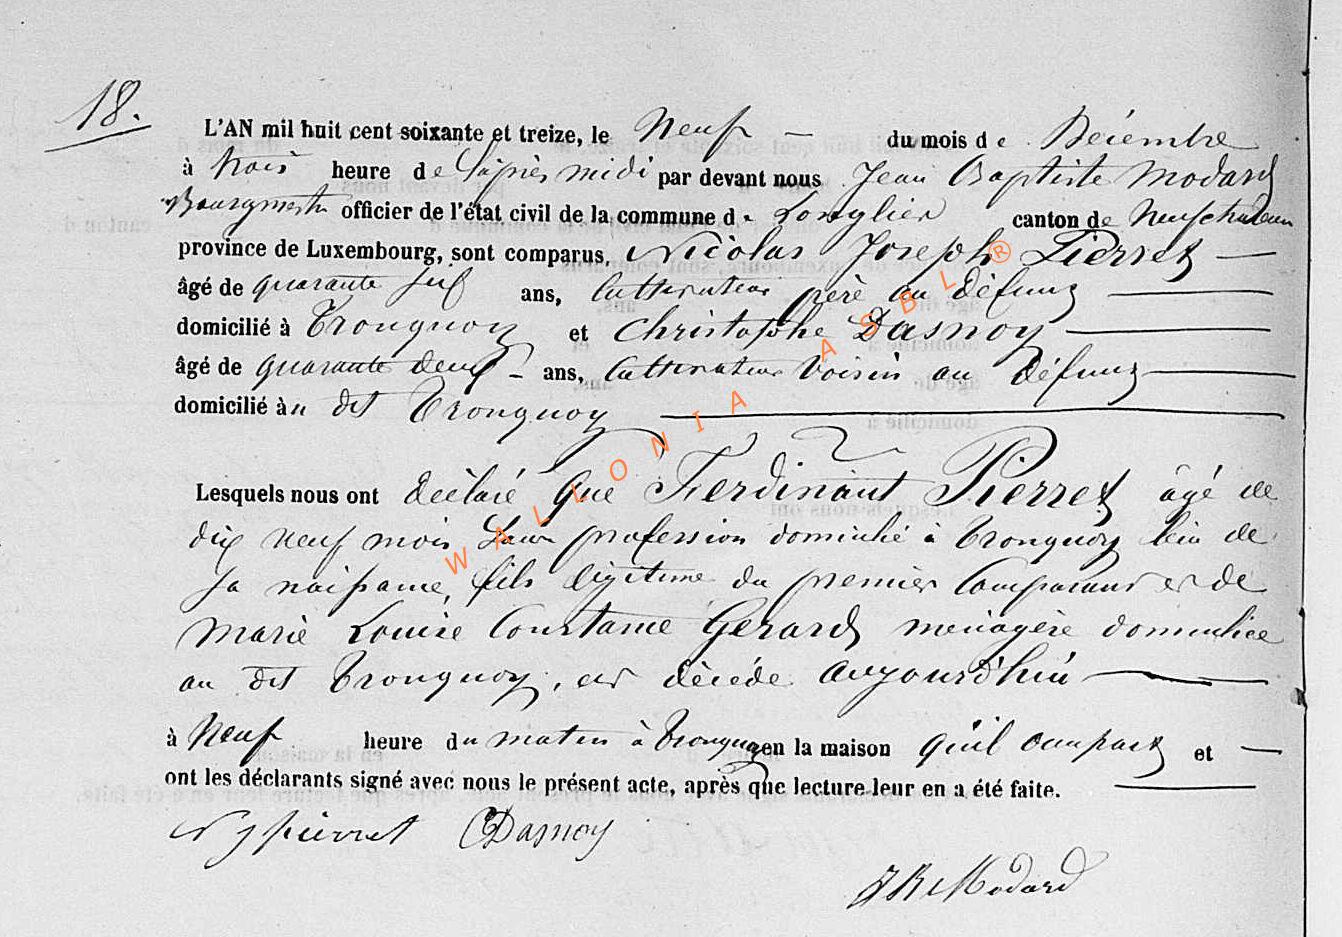 18.
L'AN mil huit cent soixante et treize, le Neuf — du mois de Décembre
à trois heure de l'après midi par devant nous Jean Baptiste Modard
Bourgmestre officier de l'état civil de la commune de Longlier canton de Neufchateau
province de Luxembourg, sont comparus, Nicolas Joseph Pierret —
âgé de quarante six ans, Cultivateur père au défunt —
domicilié à Tronquoy et Christophe Dasnoy —
âgé de quarante deux — ans, Cultivateur voisin au défunt —
domicilié au dit Tronquoy —
Lesquels nous ont déclaré que Ferdinant Pierret âgé de
dix neuf mois Sans profession domicilié à Tronquoy lieu de
sa naissance, fils légitime du premier Comparant et de
Marie Louise Constance Gerard ménagère domiciliée
au dit Tronquoy, est décédé aujourd'hui —
à Neuf heure du matin à Tronquoy en la maison qu'il occupait et —
ont les déclarants signé avec nous le présent acte, après que lecture leur en a été faite. —
N J Pierret C Dasnoy
J B Modard
WALLONIA ASBL ®